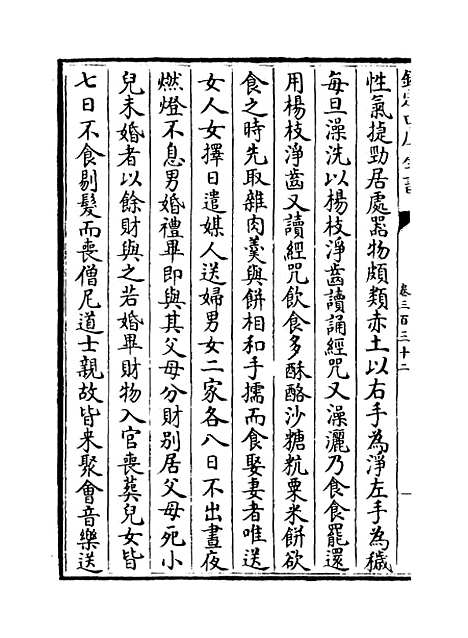 欽定四庫全書
卷三百三十二
性氣捷勁居處器物頗類赤土以右手為淨左手為穢
每旦澡洗以楊枝淨齒讀誦經咒又澡灑乃食食罷還
用楊枝淨齒又讀經咒飲食多酥酪沙糖秔粟米餅欲
食之時先取雜肉羹與餅相和手擩而食娶妻者唯送
女人女擇日遣媒人送婦男女二家各八日不出晝夜
燃燈不息男婚禮畢即與其父母分財別居父母死小
兒未婚者以餘財與之若婚畢財物入官喪葬兒女皆
七日不食剔髮而喪僧尼道士親故皆来聚會音樂送